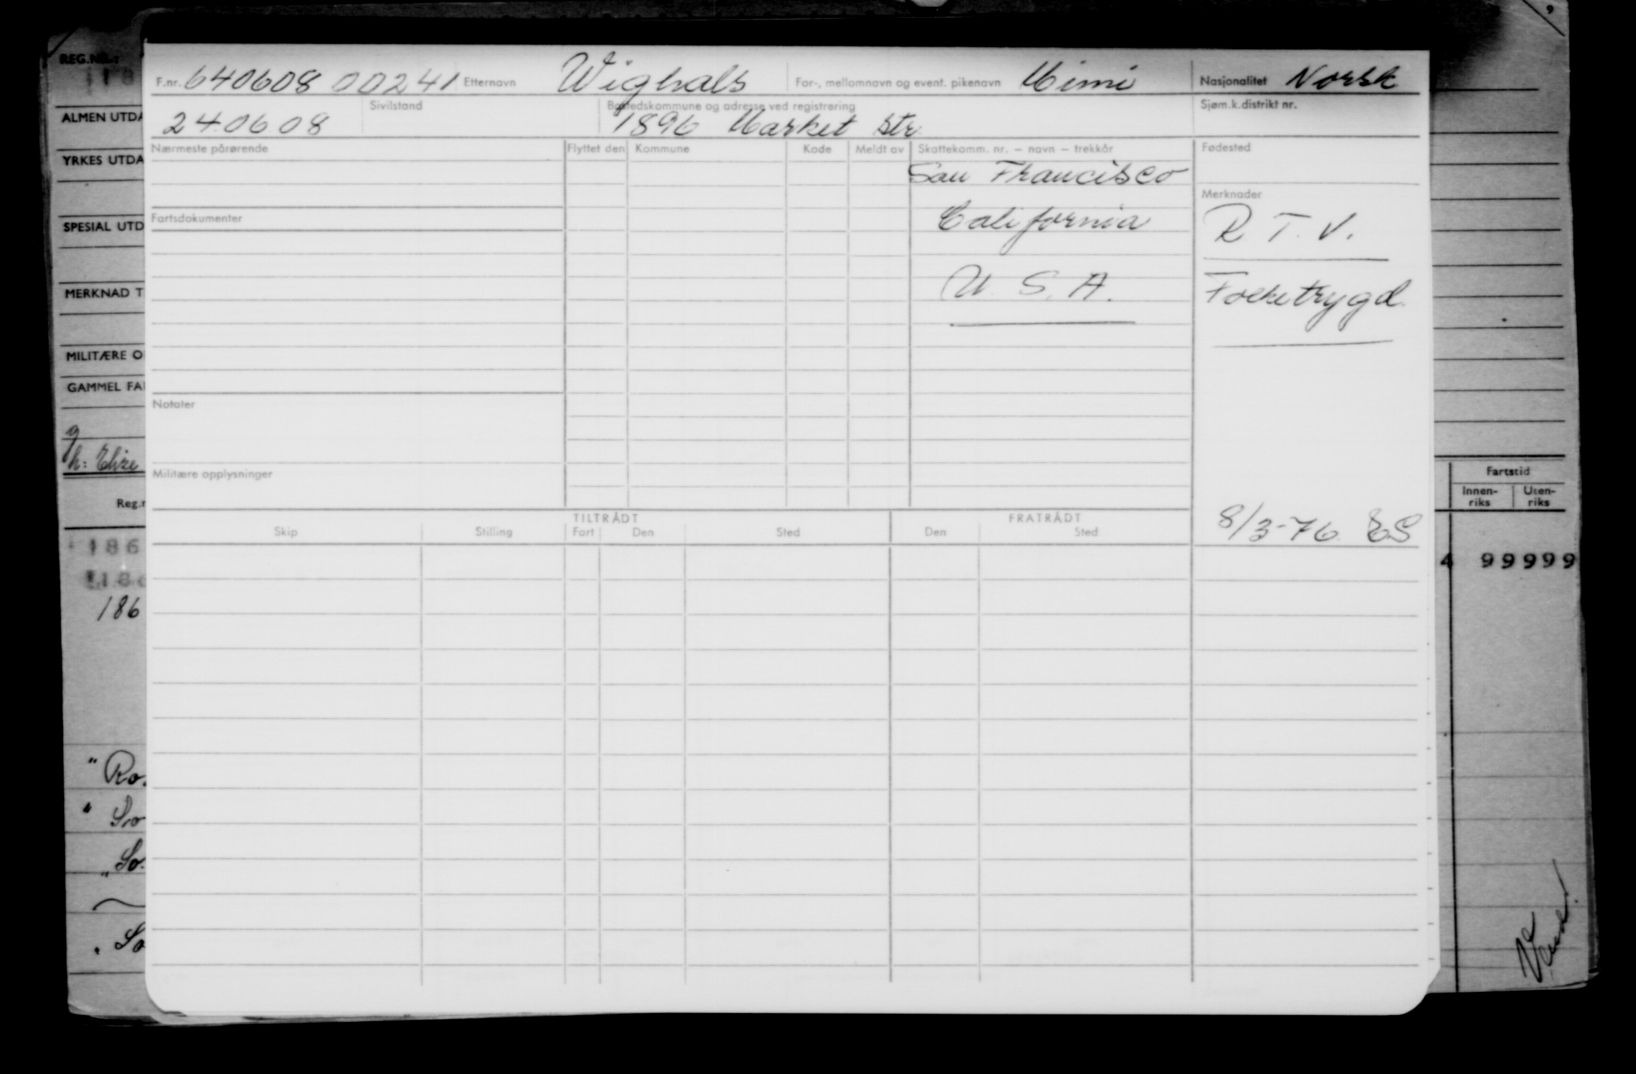 REG.NR.:
118
F.nr. 640608 00241 Etternavn Wighals For-, mellomnavn og event. pikenavn Mimi Nasjonalitet Norsk
ALMEN UTDA
Sivilstand Bostedskommune og adresse ved registrering Sjøm.k.distrikt nr.
240608 1896 Market str.
YRKES UTDA
Nærmeste pårørende Flyttet den Kommune Kode Meldt av Skattekomm. nr. – navn – trekkår Fødested
San Francisco
Merknader
SPESIAL UTD
Fartsdokumenter California R T. V.
MERKNAD T
U. S. A. Folketrygd
MILITÆRE O
GAMMEL FA
Notater
g
h: Elize
Militære opplysninger
Fartstid
Innen-riks Uten-riks
Reg.n
TILTRÅDT FRATRÅDT
Skip Stilling Fart Den Sted Den Sted
8/3-76 ES
186
4 99999
186
186
" Ro.
" So
" So.
" So